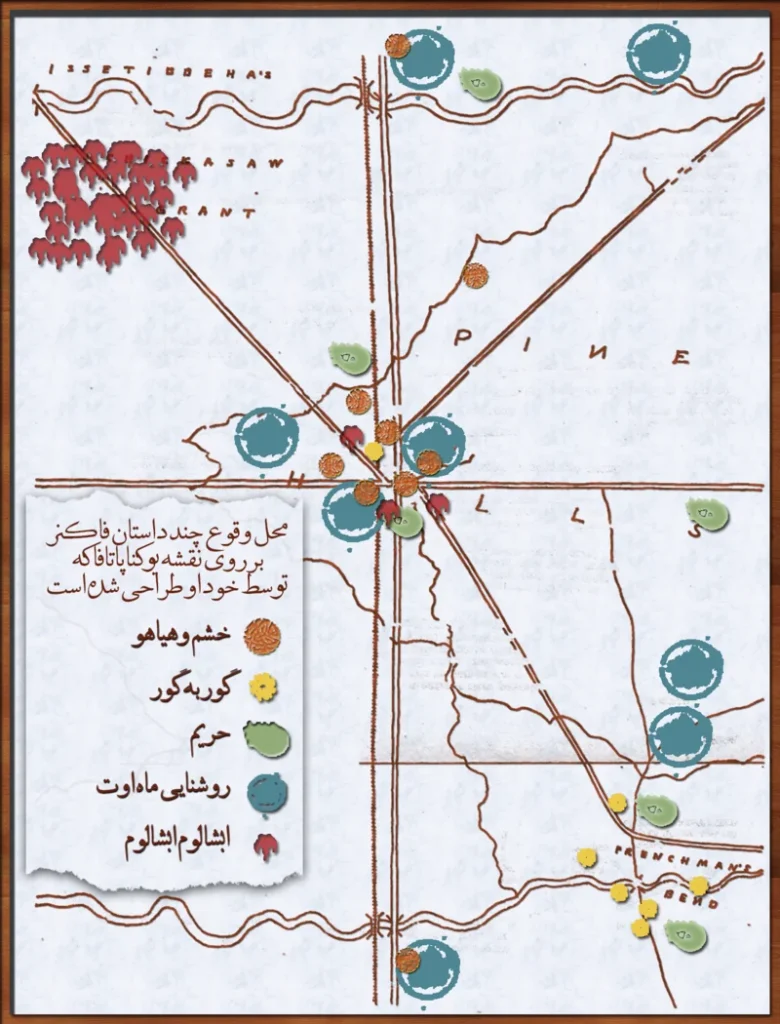 ISSETIBBEHA'S
CHICKERSAW
GRANT
PINE
HILLS
محل وقوع چند داستان فاکنر
بر روی نقشه یوکناپاتافا که
توسط خود او طراحی شده است
خشم و هیاهو
گور به گور
حریم
روشنایی ماه اوت
ابشالوم ابشالوم
FRENCHMAN'S
BEND